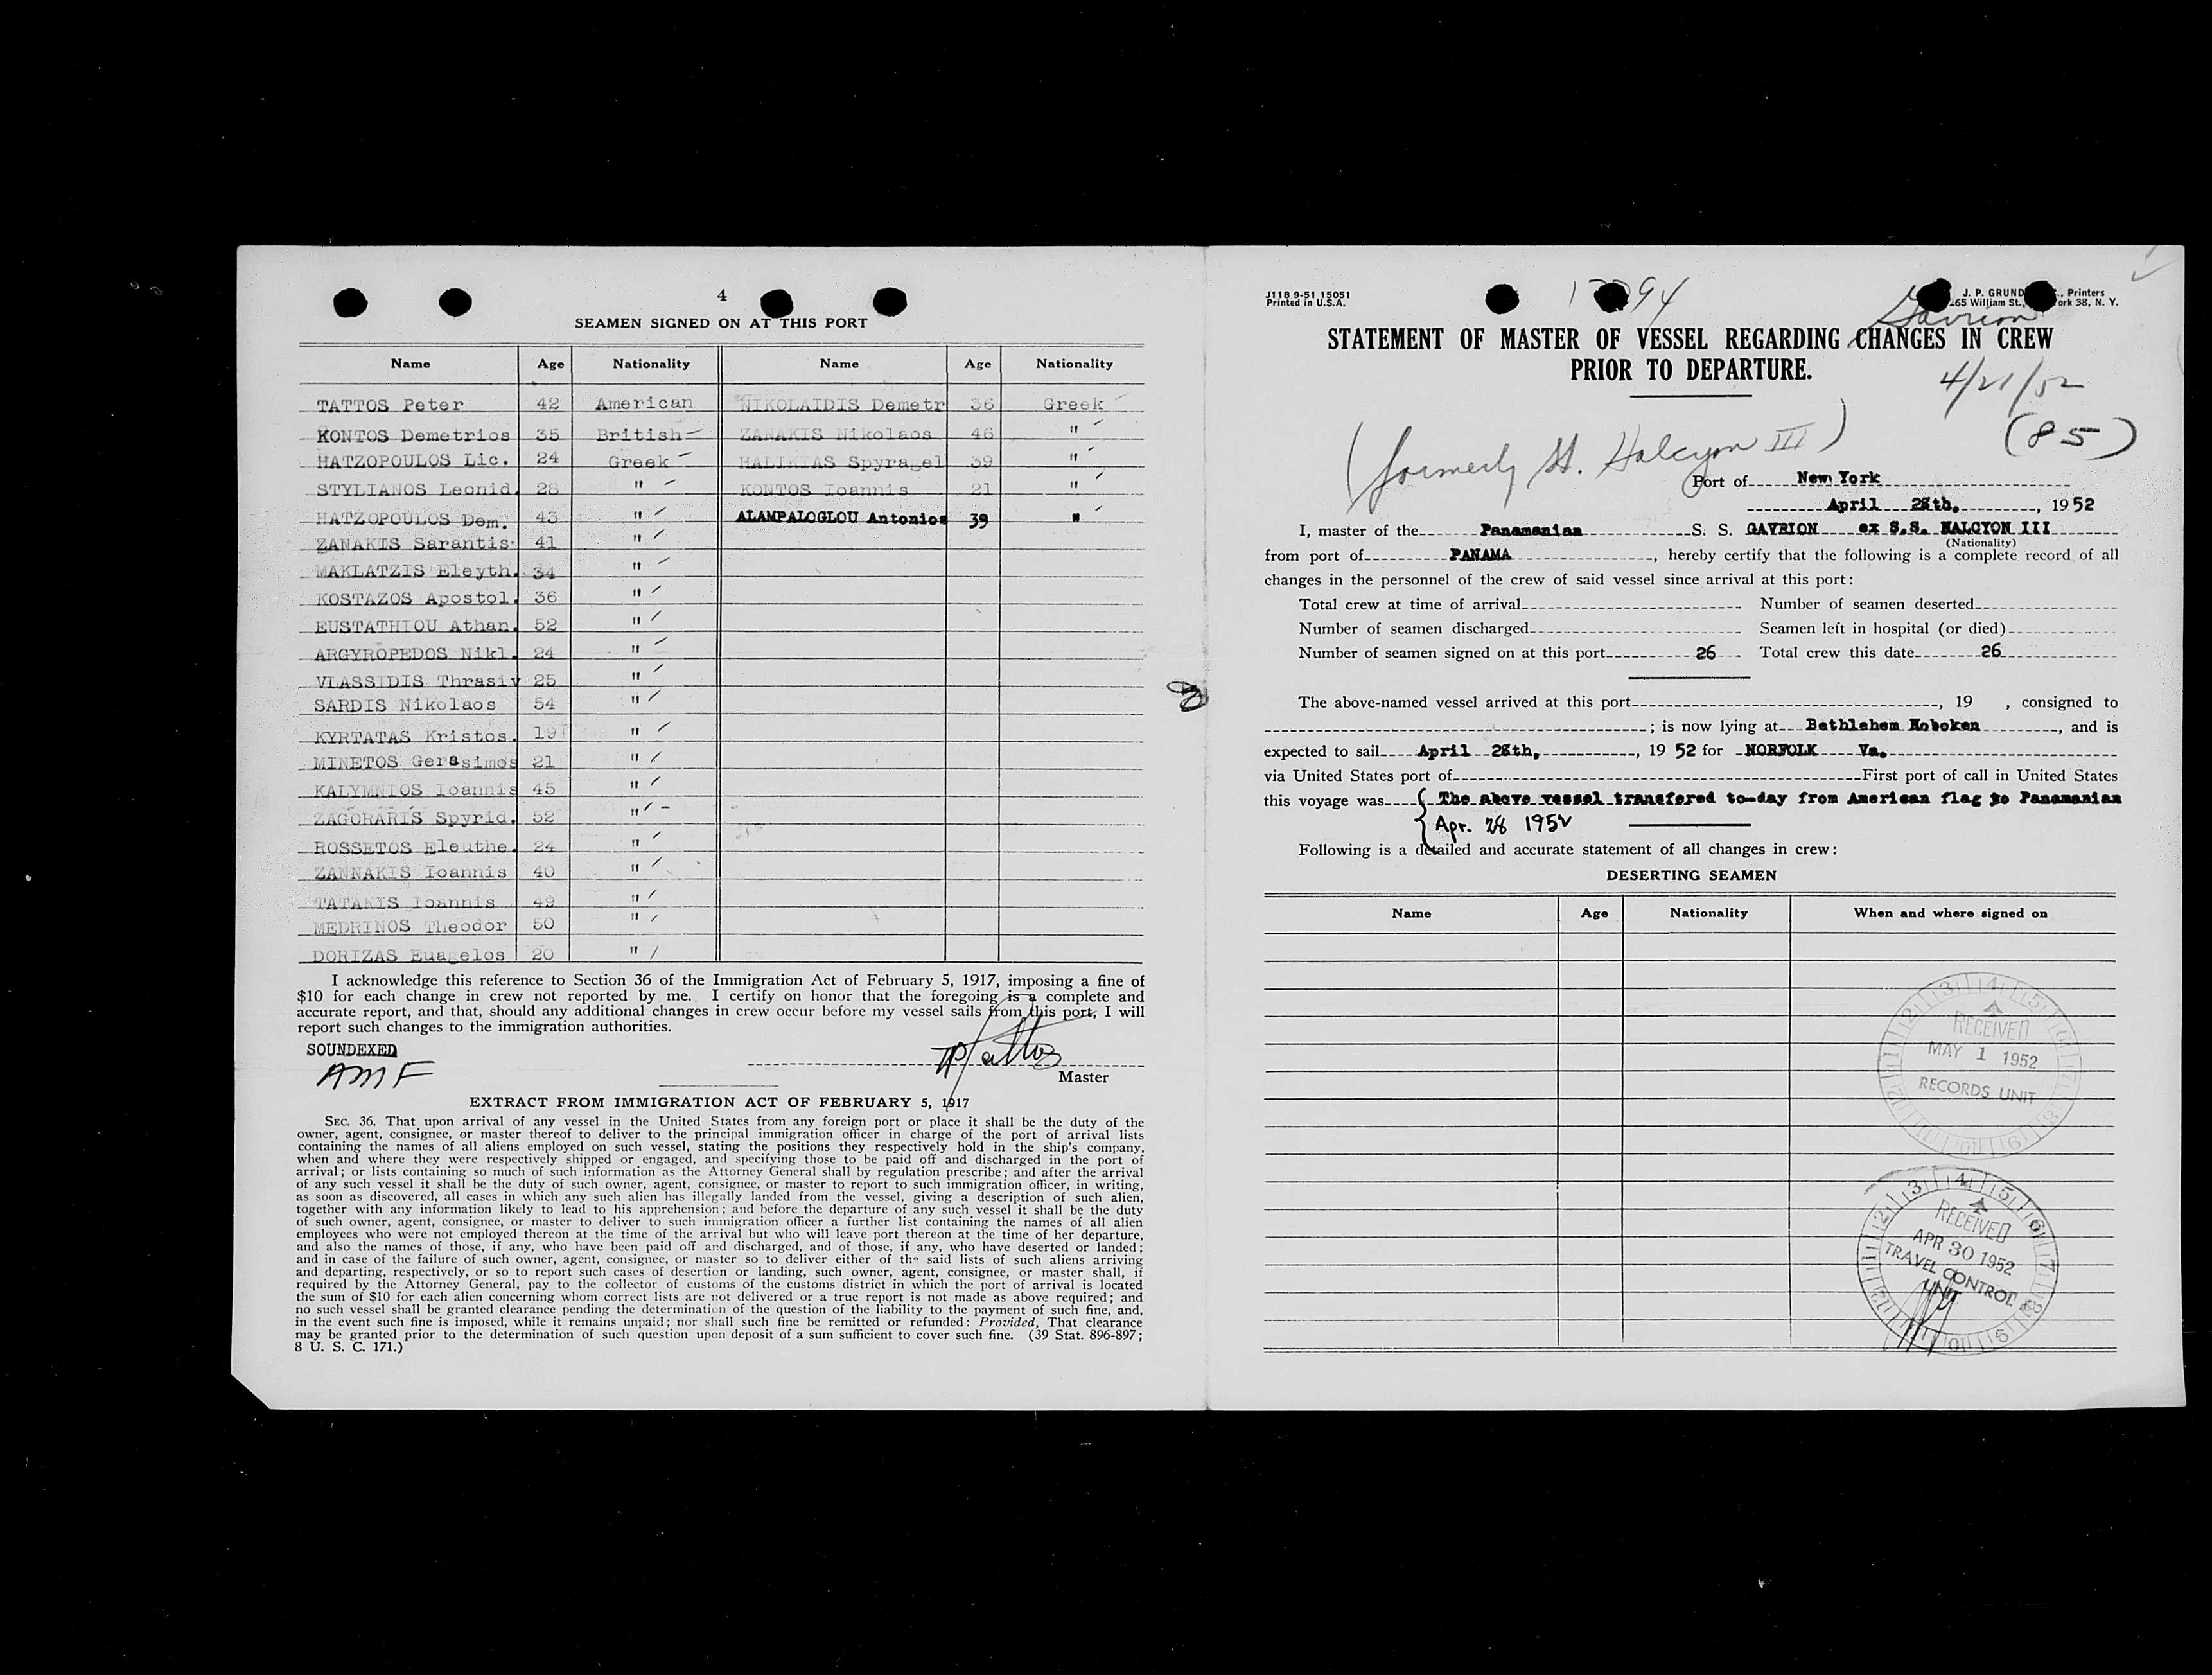 4
SEAMEN SIGNED ON AT THIS PORT
Name Age Nationality Name Age Nationality
TATTOS Peter 42 American NIKOLAIDIS Demetr 36 Greek
KONTOS Demetrios 35 British ZANAKIS Nikolaos 46 "
HATZOPOULOS Lic. 24 Greek HALIKIAS Spyragel 39 "
STYLIANOS Leonid. 28 " KONTOS Ioannis 21 "
HATZOPOULOS Dem. 43 " ALAMPALOGLOU Antonios 39 "
ZANAKIS Sarantis. 41 "
MAKLATZIS Eleyth. 34 "
KOSTAZOS Apostol. 36 "
EUSTATHIOU Athan. 52 "
ARGYROPEDOS Nikl. 24 "
VLASSIDIS Thrasiv 25 "
SARDIS Nikolaos 54 "
KYRTATAS Kristos. 19 "
MINETOS Gerasimos 21 "
KALYMNIOS Ioannis 45 "
ZAGORARIS Spyrid. 52 "
ROSSETOS Eleuthe. 24 "
ZANNAKIS Ioannis 40 "
TATAKIS Ioannis 49 "
MEDRINOS Theodor 50 "
DORIZAS Euagelos 20 "
I acknowledge this reference to Section 36 of the Immigration Act of February 5, 1917, imposing a fine of
$10 for each change in crew not reported by me. I certify on honor that the foregoing is a complete and
accurate report, and that, should any additional changes in crew occur before my vessel sails from this port, I will
report such changes to the immigration authorities.
SOUNDEXED
AMF
Master
EXTRACT FROM IMMIGRATION ACT OF FEBRUARY 5, 1917
SEC. 36. That upon arrival of any vessel in the United States from any foreign port or place it shall be the duty of the
owner, agent, consignee, or master thereof to deliver to the principal immigration officer in charge of the port of arrival lists
containing the names of all aliens employed on such vessel, stating the positions they respectively hold in the ship's company,
when and where they were respectively shipped or engaged, and specifying those to be paid off and discharged in the port of
arrival; or lists containing so much of such information as the Attorney General shall by regulation prescribe; and after the arrival
of any such vessel it shall be the duty of such owner, agent, consignee, or master to report to such immigration officer, in writing,
as soon as discovered, all cases in which any such alien has illegally landed from the vessel, giving a description of such alien,
together with any information likely to lead to his apprehension; and before the departure of any such vessel it shall be the duty
of such owner, agent, consignee, or master to deliver to such immigration officer a further list containing the names of all alien
employees who were not employed thereon at the time of the arrival but who will leave port thereon at the time of her departure,
and also the names of those, if any, who have been paid off and discharged, and of those, if any, who have deserted or landed;
and in case of the failure of such owner, agent, consignee, or master so to deliver either of the said lists of such aliens arriving
and departing, respectively, or so to report such cases of desertion or landing, such owner, agent, consignee, or master shall, if
required by the Attorney General, pay to the collector of customs of the customs district in which the port of arrival is located
the sum of $10 for each alien concerning whom correct lists are not delivered or a true report is not made as above required; and
no such vessel shall be granted clearance pending the determination of the question of the liability to the payment of such fine, and,
in the event such fine is imposed, while it remains unpaid; nor shall such fine be remitted or refunded: Provided, That clearance
may be granted prior to the determination of such question upon deposit of a sum sufficient to cover such fine. (39 Stat. 896-897;
8 U. S. C. 171.)
J118 9-51 15051
Printed in U.S.A.
94
J. P. GRUND , Printers
165 William St., ork 38, N. Y.
Gavrion
STATEMENT OF MASTER OF VESSEL REGARDING CHANGES IN CREW
PRIOR TO DEPARTURE.
4/21/52
(85)
(formerly St. Halcyon III)
Port of New York
April 28th, , 1952
I, master of the Panamanian S. S. GAVRION ex S.S. HALCYON III
(Nationality)
from port of PANAMA , hereby certify that the following is a complete record of all
changes in the personnel of the crew of said vessel since arrival at this port:
Total crew at time of arrival Number of seamen deserted
Number of seamen discharged Seamen left in hospital (or died)
Number of seamen signed on at this port 26 Total crew this date 26
The above-named vessel arrived at this port , 19 , consigned to
; is now lying at Bethlehem Hoboken , and is
expected to sail April 28th, , 19 52 for NORFOLK Va.
via United States port of First port of call in United States
this voyage was The above vessel transfered to-day from American flag to Panamanian
Apr. 28 1952
Following is a detailed and accurate statement of all changes in crew:
DESERTING SEAMEN
Name Age Nationality When and where signed on
RECEIVED
MAY 1 1952
RECORDS UNIT
RECEIVED
APR 30 1952
TRAVEL CONTROL
UNIT